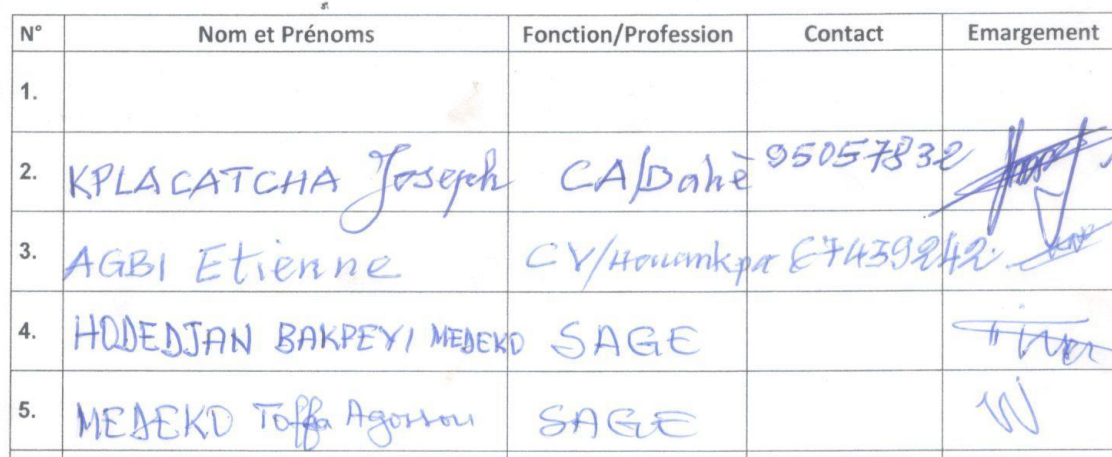 N° Nom et Prénoms Fonction/Profession Contact Emargement
1.
2. KPLACATCHA Joseph CA/Dohè 95057832
3. AGBI Etienne CV/Houinkpa 67439242
4. HODEDJAN BAKPEYI MEDEKO SAGE
5. MEDEKO Toffa Agossou SAGE